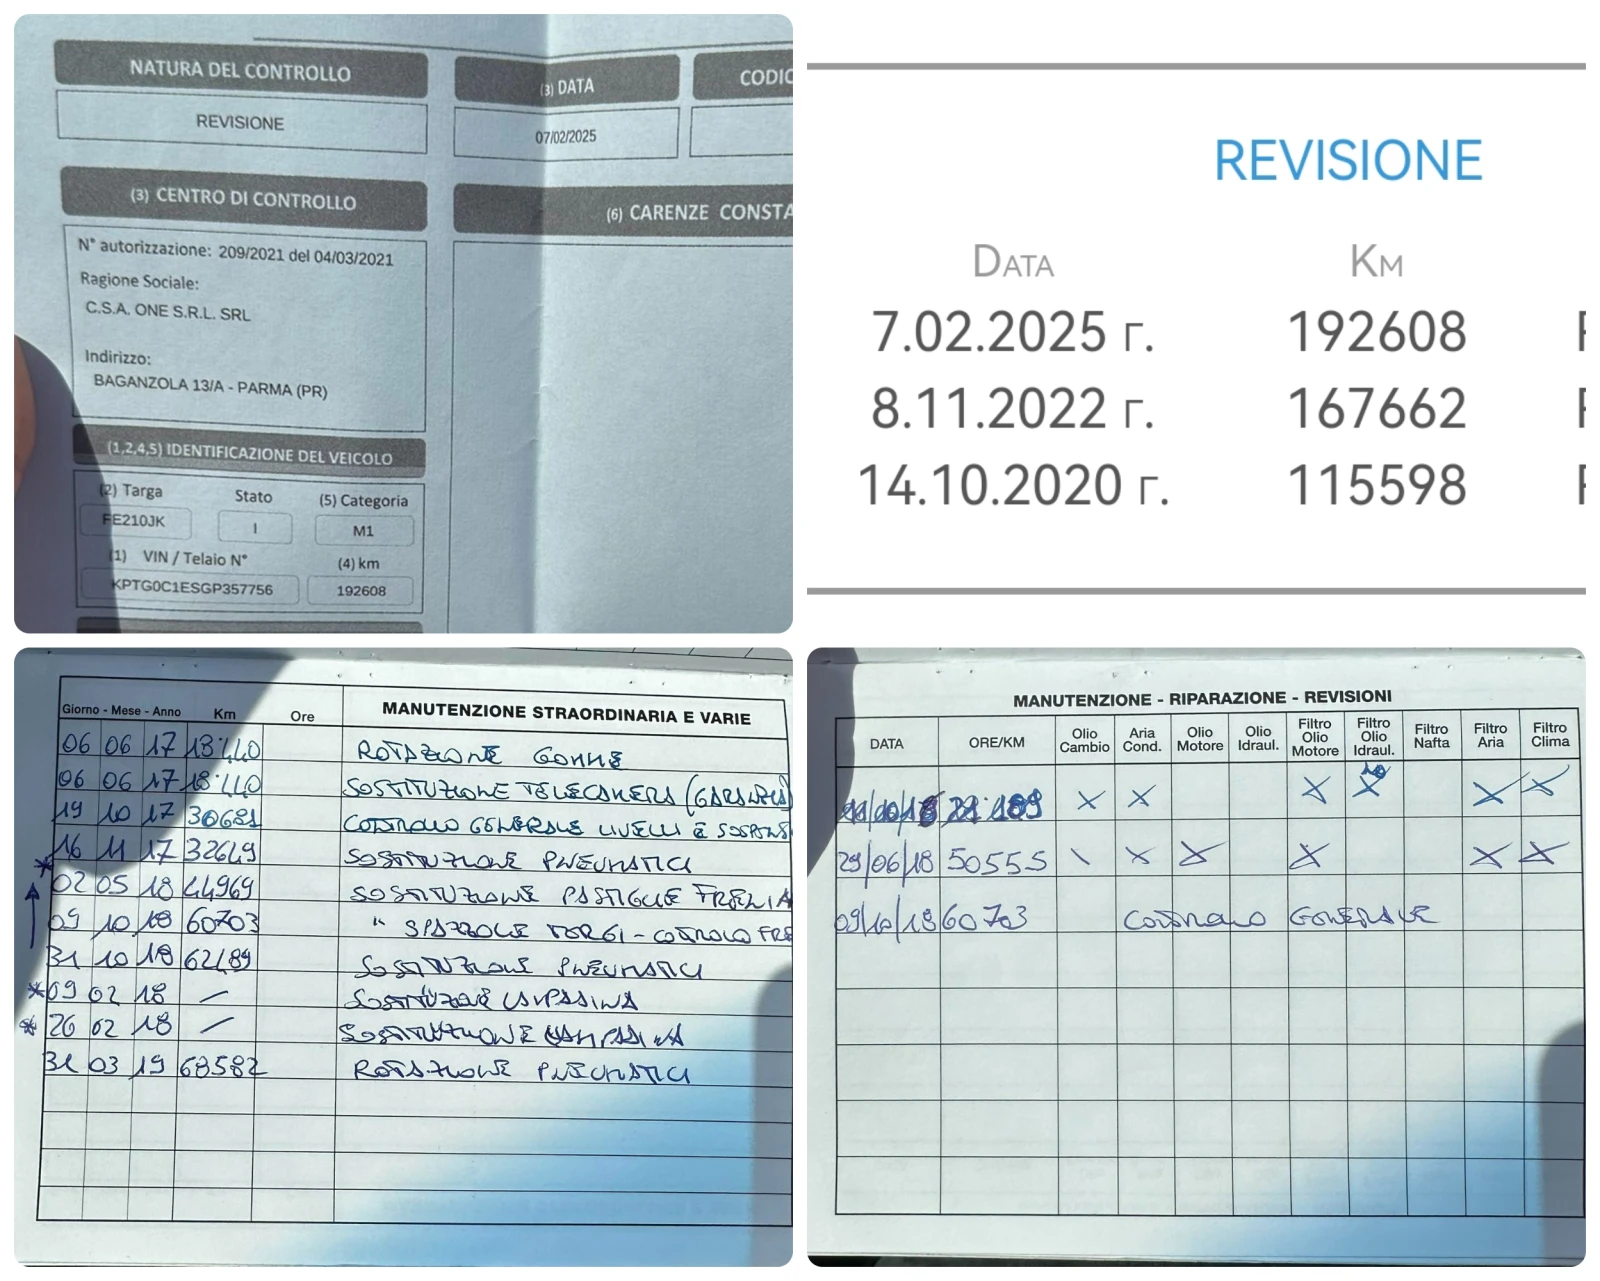 NATURA DEL CONTROLLO
REVISIONE
(3) DATA
07/02/2025
CODIC
(3) CENTRO DI CONTROLLO
N° autorizzazione: 209/2021 del 04/03/2021
Ragione Sociale:
C.S.A. ONE S.R.L. SRL
Indirizzo:
BAGANZOLA 13/A - PARMA (PR)
(6) CARENZE CONSTA
(1,2,4,5) IDENTIFICAZIONE DEL VEICOLO
(2) Targa Stato (5) Categoria
FE210JK I M1
(1) VIN / Telaio N° (4) km
KPTG0C1ESGP357756 192608
REVISIONE
DATA KM
7.02.2025 г. 192608
8.11.2022 г. 167662
14.10.2020 г. 115598
Giorno - Mese - Anno Km Ore MANUTENZIONE STRAORDINARIA E VARIE
06 06 17 18.440 ROTAZIONE GOMME
06 06 17 18.440 SOSTITUZIONE TELECAMERA (GARANZIA)
19 10 17 30681 CONTROLLO GENERALE LIVELLI E SOSPENS
16 11 17 32649 SOSTITUZIONE PNEUMATICI
02 05 18 44969 SOSTITUZIONE PASTIGLIE FRENI A
09 10 18 60703 " SPAZZOLE TERGI - CONTROLLO FRE
31 10 18 62489 SOSTITUZIONE PNEUMATICI
09 02 18 — SOSTITUZIONE LAMPADINA
26 02 18 — SOSTITUZIONE LAMPADINA
31 03 19 68582 ROTAZIONE PNEUMATICI
MANUTENZIONE - RIPARAZIONE - REVISIONI
DATA ORE/KM Olio Cambio Aria Cond. Olio Motore Olio Idraul. Filtro Olio Motore Filtro Olio Idraul. Filtro Nafta Filtro Aria Filtro Clima
X X X X X X
29/06/18 50555 \ X X X X X
09/10/18 60703 CONTROLLO GENERALE